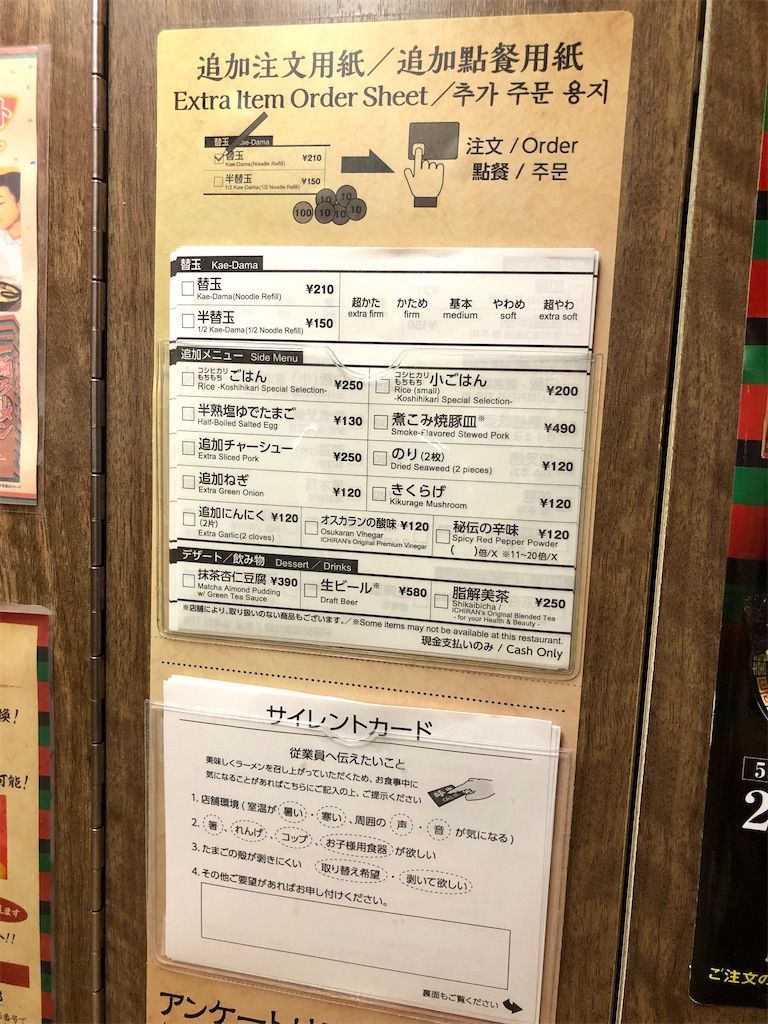 追加注文用紙／追加點餐用紙
Extra Item Order Sheet／추가 주문 용지
替玉 Kae-Dama
替玉 ¥210
Kae-Dama(Noodle Refill)
半替玉 ¥150
1/2 Kae-Dama(1/2 Noodle Refill)
100 10 10 10 10
注文 / Order
點餐 / 주문
替玉 Kae-Dama
替玉 ¥210
Kae-Dama(Noodle Refill)
半替玉 ¥150
1/2 Kae-Dama(1/2 Noodle Refill)
超かた かため 基本 やわめ 超やわ
extra firm firm medium soft extra soft
追加メニュー Side Menu
コシヒカリ もちもち ごはん ¥250
Rice -Koshihikari Special Selection-
コシヒカリ もちもち 小ごはん ¥200
Rice (small)
-Koshihikari Special Selection-
半熟塩ゆでたまご ¥130
Half-Boiled Salted Egg
煮こみ焼豚皿※ ¥490
Smoke-Flavored Stewed Pork
追加チャーシュー ¥250
Extra Sliced Pork
のり(2枚) ¥120
Dried Seaweed (2 pieces)
追加ねぎ ¥120
Extra Green Onion
きくらげ ¥120
Kikurage Mushroom
追加にんにく ¥120
(2片)
Extra Garlic(2 cloves)
オスカランの酸味 ¥120
Osukaran Vinegar
ICHIRAN's Original Premium Vinegar
秘伝の辛味 ¥120
Spicy Red Pepper Powder
( )倍/X ※11～20倍/X
デザート／飲み物 Dessert／Drinks
抹茶杏仁豆腐 ¥390
Matcha Almond Pudding
w/ Green Tea Sauce
生ビール※ ¥580
Draft Beer
脂解美茶 ¥250
Shikaibicha /
ICHIRAN's Original Blended Tea
- for your Health & Beauty -
※店舗により、取り扱いのない商品もございます。／※Some items may not be available at this restaurant.
現金支払いのみ / Cash Only
サイレントカード
従業員へ伝えたいこと
美味しくラーメンを召し上がっていただくため、お食事中に
気になることがあればこちらにご記入の上、ご提示ください
1. 店舗環境 ( 室温が 暑い ・ 寒い 、周囲の 声 ・ 音 が気になる )
2. 箸 、 れんげ 、 コップ 、 お子様用食器 が欲しい
3. たまごの殻が剥きにくい 取り替え希望 ・ 剥いて欲しい
4. その他ご要望があればお申し付けください。
裏面もご覧ください
アンケート
換!
可能!
ご注文の
5
2